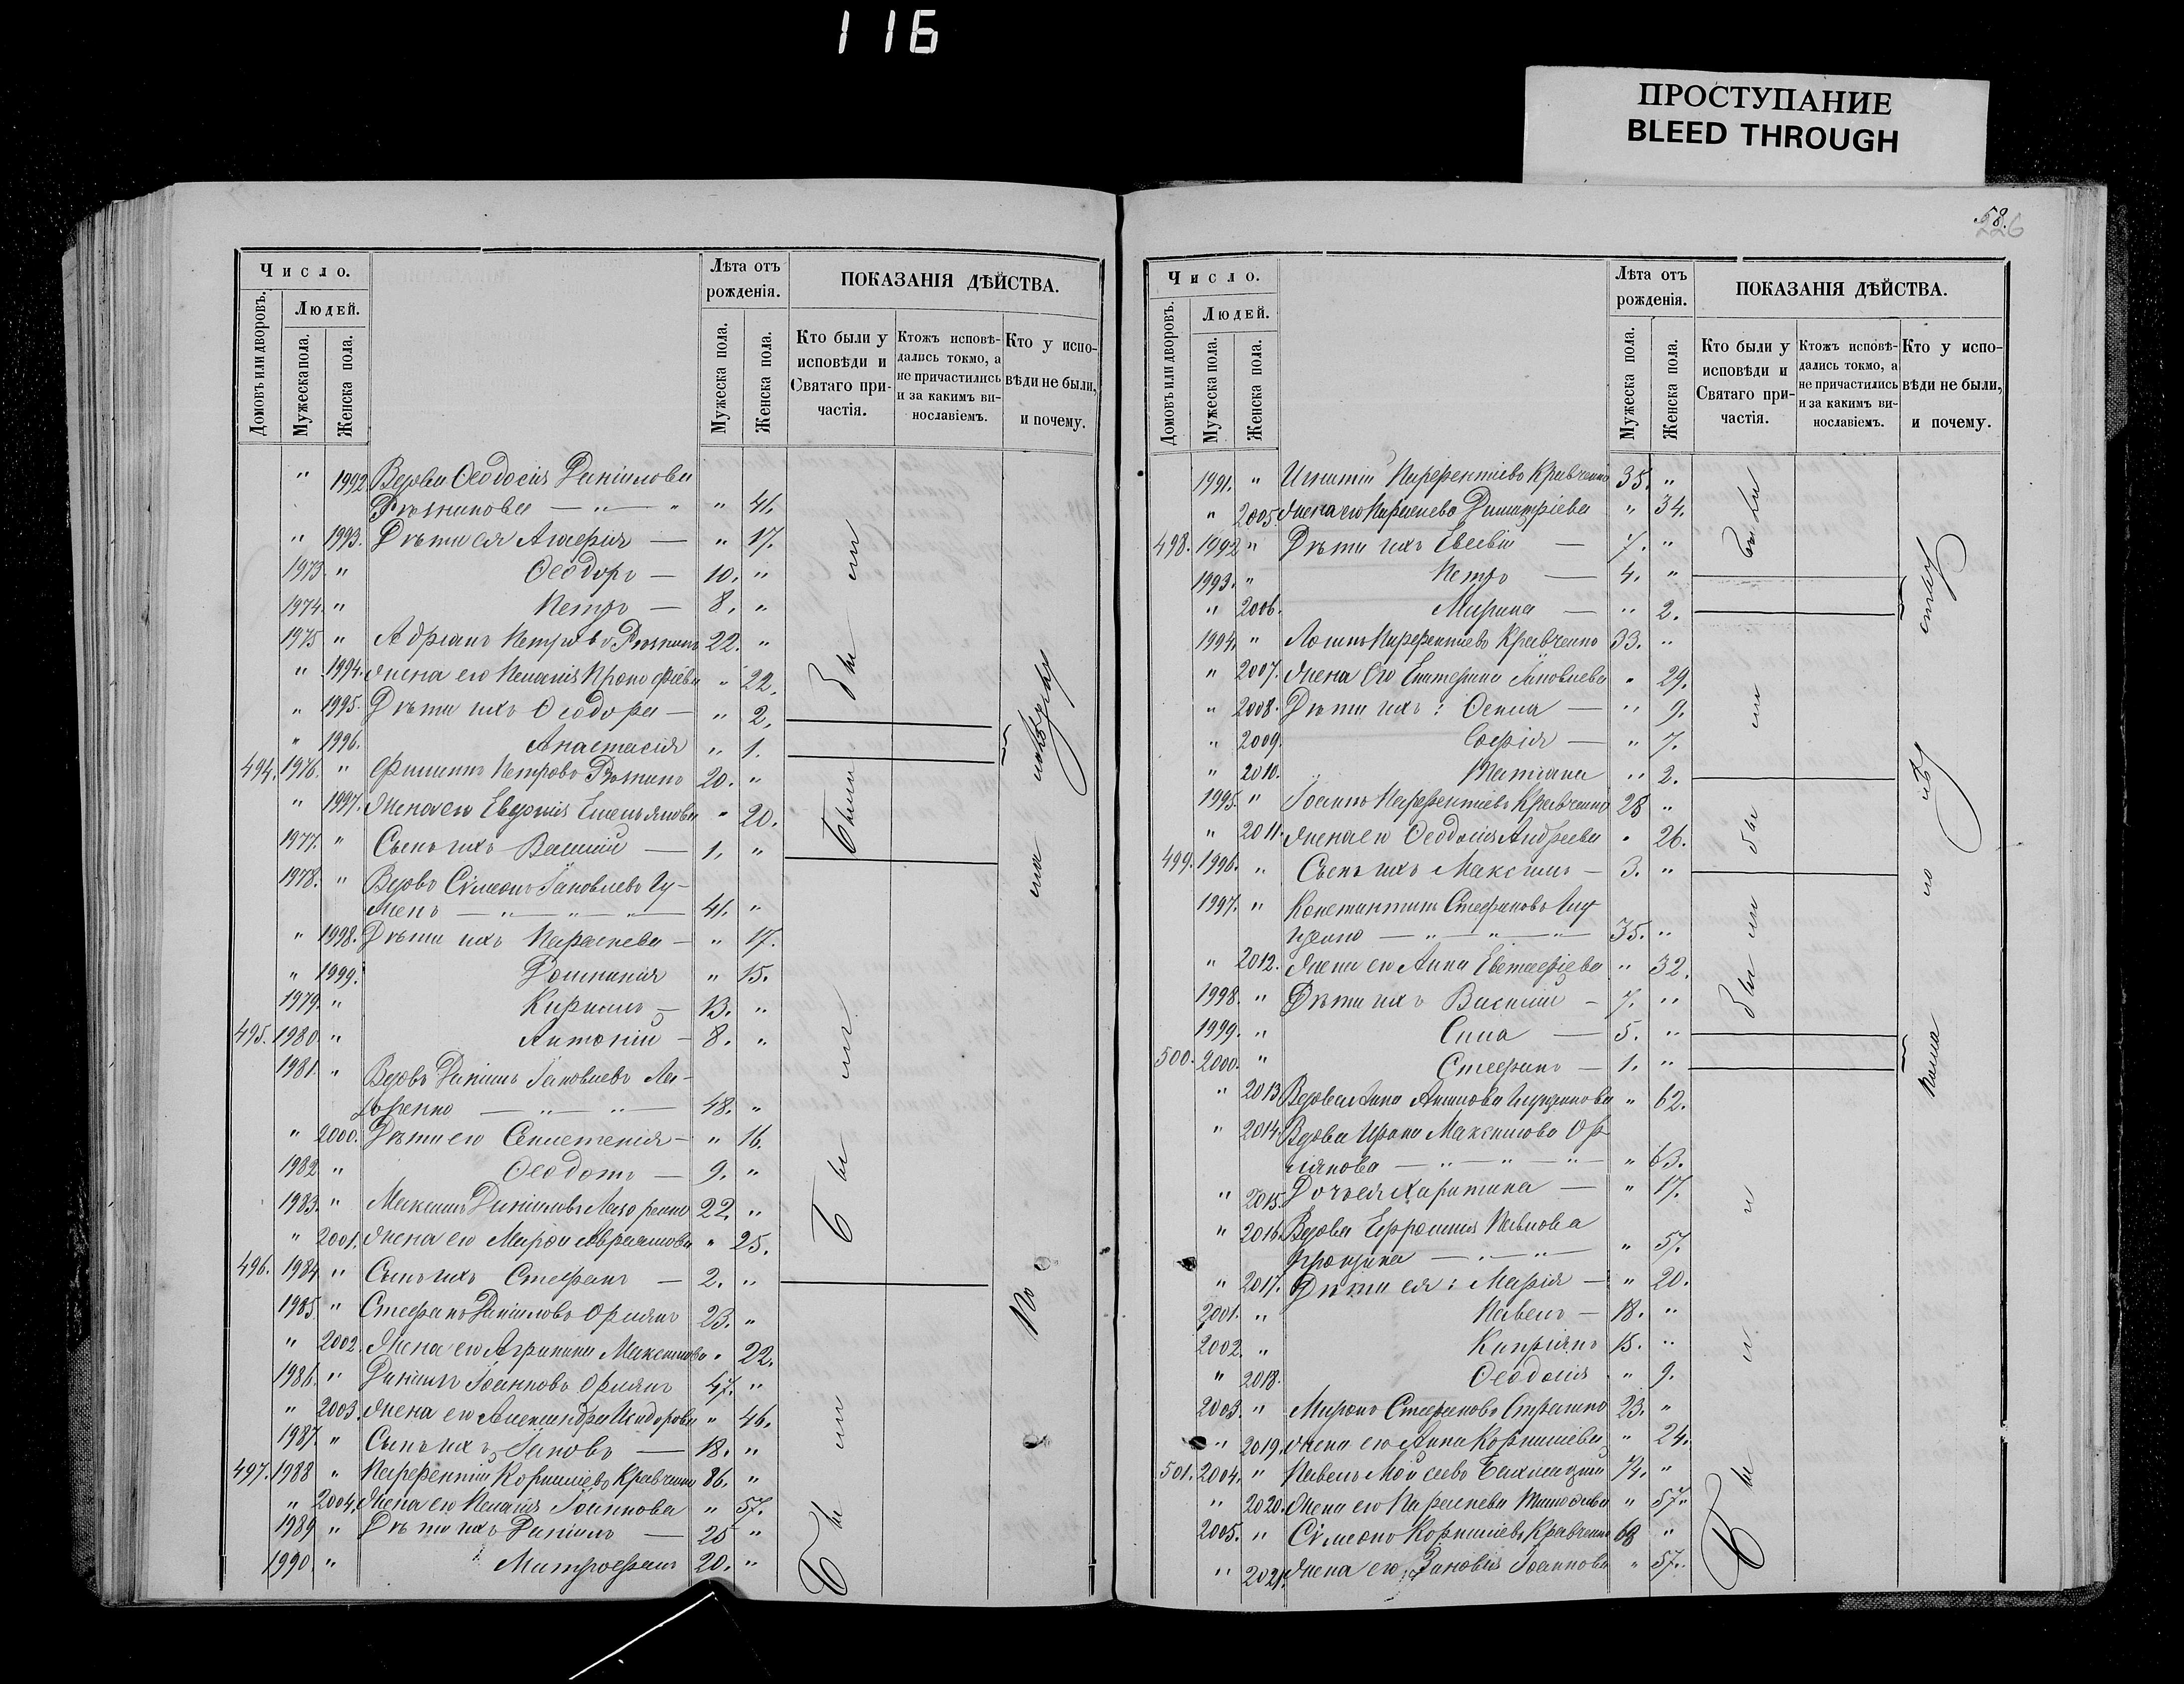 116
ПРОСТУПАНИЕ
BLEED THROUGH
Число.
Лѣта отъ рожденія.
ПОКАЗАНІЯ ДѢЙСТВА.
Домовъ или дворовъ.
Людей.
Мужеска пола.
Женска пола.
Мужеска пола.
Женска пола.
Кто были у исповѣди и Святаго причастія.
Ктожъ исповѣдались токмо, а не причастились и за какимъ винословіемъ.
Кто у исповѣди не были, и почему.
" 1992 Вдова Ѳеодосія Даніилова
" 41.
" 1993. Дѣти ея — " 17.
1973. " Ѳеодоръ — 10. "
1974. " Петръ — 8. "
1975 " Адріанъ Петровъ 22. "
" 1994. Жена его Прокофіева " 22.
" 1995. Дѣти ихъ Ѳеодора — " 2.
" 1996. Анастасія " 1.
494. 1976. " Филиппъ Петровъ 20. "
" 1997. Жена его Евдокія Емельянова " 20.
1977. " Сынъ ихъ Василій — 1. "
1978. " Вдовъ Сѵмеонъ Іаковлевъ Гу-
менъ — " — " — " — 41. "
" 1998. Дѣти ихъ Параскева — " 17.
" 1999. Домникія " 15.
1979. " Кириллъ — 13. "
495. 1980. " Антоній — 8. "
1981. " Вдовъ Даніилъ Іаковлевъ Ла-
— " — " — 48. "
" 2000. Дѣти его — " 16.
1982 " Ѳеодотъ — 9. "
1983. " Максимъ Даніиловъ 22. "
" 2001. Жена его Авраамова " 25.
496. 1984 " Сынъ ихъ Стефанъ — 2. "
1985. " Стефанъ Даніиловъ 23. "
" 2002. Жена его Агрипина Максимова " 22.
1986. " Даніилъ Іоанновъ 47. "
" 2003. Жена его Александра Исидорова " 46.
1987. " Сынъ ихъ Іаковъ — 18. "
497. 1988 " Парфентій Корниліевъ Кравченко 86. "
" 2004. Жена его Іоаннова " 57.
1989 " Дѣти ихъ Даніилъ — 25 "
1990. " Митрофанъ 20. "
Были
Были
Были
Были
По
58.
226
Число.
Лѣта отъ рожденія.
ПОКАЗАНІЯ ДѢЙСТВА.
Домовъ или дворовъ.
Людей.
Мужеска пола.
Женска пола.
Мужеска пола.
Женска пола.
Кто были у исповѣди и Святаго причастія.
Ктожъ исповѣдались токмо, а не причастились и за какимъ винославіемъ.
Кто у исповѣди не были, и почему.
1991. " Игнатій Парфентіевъ Кравченко 35. "
" 2005. Жена его Параскева Димитріева " 34.
498. 1992 " Дѣти ихъ Евсевій — 7. "
1993. " Петръ — 4. "
" 2006. Марина — " 2.
1994. " Парфентіевъ Кравченко 33. "
" 2007. Жена его Екатерина Іаковлева " 29.
" 2008. Дѣти ихъ: — " 9.
" 2009. Софія — " 7.
" 2010. Татіана " 2.
1995. " Іоаннъ Парфентіевъ Кравченко 28 "
" 2011. Жена его Ѳеодосія Андреева " 26.
499. 1996. " Сынъ ихъ Максимъ — 3. "
1997. " Константинъ Стефановъ
— " — " — " — 35. "
" 2012. Жена его Анна Евстафіева " 32.
1998. " Дѣти ихъ Василій — 7. "
1999. " Сила — 5. "
500. 2000. " Стефанъ — 1. "
" 2013 Вдова " 62.
" 2014. Вдова Максимова Ор-
— " — " — " — " 63.
" 2015. Дочь ея Харитина — " 17.
" 2016. Вдова Ефросинія Павлова
— " — " — " 57.
" 2017. Дѣти ея: Марія — " 20.
2001. " Павелъ — 18. "
2002. " Кипріанъ 15. "
" 2018. Ѳеодосія " 9.
2003. " Миронъ Стефановъ 23. "
" 2019. Жена его Анна Корниліева " 24.
501. 2004. " Павелъ Моисеевъ 74. "
" 2020. Жена его Параскева " 57.
2005. " Сѵмеонъ Корниліевъ Кравченко 68 "
" 2021. Жена его Зиновія Іоаннова " 57.
Были
Были